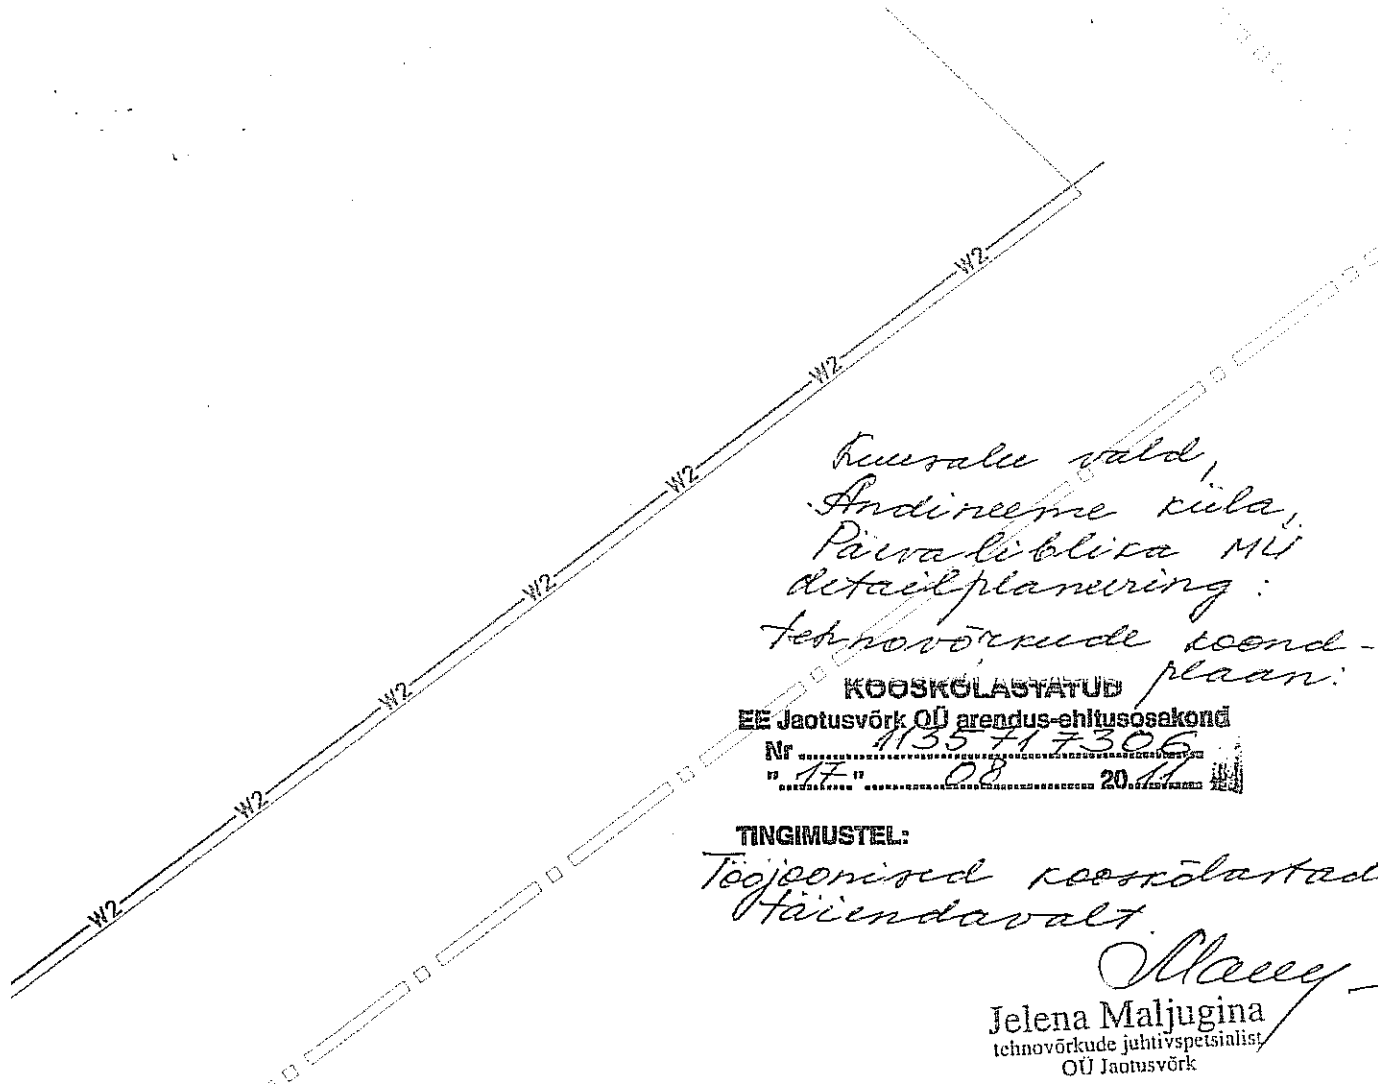 W2
W2
W2
W2
W2
W2
W2
Kuusalu vald,
Andineeme küla,
Päevaliblika MÜ
detailplaneering:
tehnovõrkude koond-
plaan:
KOOSKÕLASTATUD
EE Jaotusvõrk OÜ arendus-ehitusosakond
Nr 1135717306
"17" 08 2011
TINGIMUSTEL:
Tööjoonised kooskõlastad
täiendavalt.
Jelena Maljugina
tehnovõrkude juhtivspetsialist
OÜ Jaotusvõrk